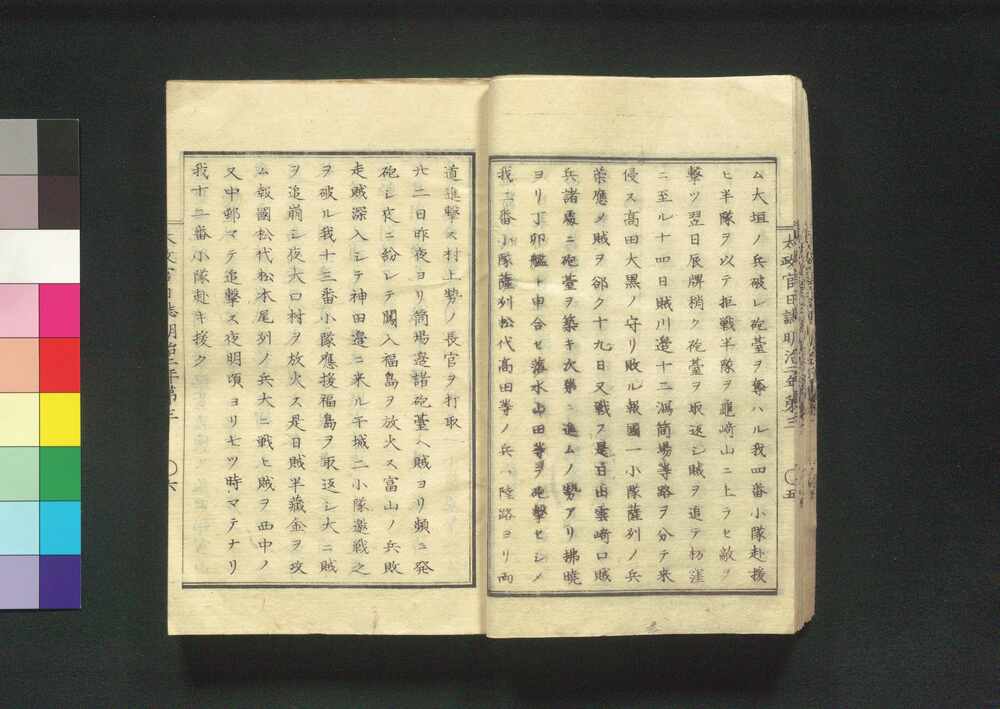 ム大垣ノ兵破レ砲臺ヲ奪ハル我四番小隊赴援
ヒ半隊ヲ以テ拒戦半隊ヲ亀﨑山ニ上ラセ敵ヲ
撃ツ翌日辰牌稍ク砲臺ヲ取返シ賊ヲ追テ杤窪
ニ至ル十四日賊川邉十二潟筒場等路ヲ分テ来
侵ス髙田大黒ノ守リ敗ル報國一小隊薩列ノ兵
策應メ賊ヲ郤ク十九日又戦フ是日出雲﨑口賊
兵諸處ニ砲䑓ヲ築キ次第ニ進ムノ勢アリ拂曉
ヨリ丁卯艦ト申合セ落水山田等ヲ砲撃セシメ
我二番小隊薩列松代髙田等ノ兵ハ陸路ヨリ両
太政官日誌明治二年第三 〇五
道進撃ス村上勢ノ長官ヲ打取
廾二日昨夜ヨリ筒場邉諸砲䑓ヘ賊ヨリ頻ニ発
砲シ夾ニ紛レテ闖入福島ヲ放火ス富山ノ兵敗
走賊深入シテ神田邉ニ来ル干城二小隊邀戦之
ヲ破ル我十三番小隊應援福島ヲ取返シ大ニ賊
ヲ追崩シ夜大口村ヲ放火ス是日賊半藏金ヲ攻
ム報國松代松本尾列ノ兵大ニ戦ヒ賊ヲ西中ノ
又中郷マテ追撃ス夜明頃ヨリ七ツ時マテナリ
我十二番小隊赴キ援ク
太政官日誌明治二年第三 〇六